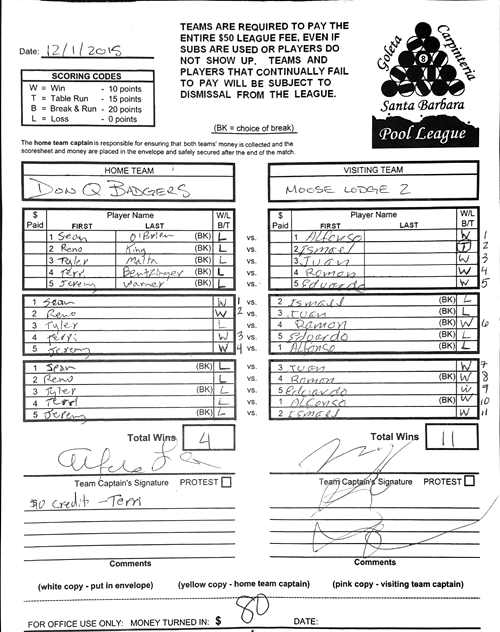 Date: 12/1/2015
TEAMS ARE REQUIRED TO PAY THE
ENTIRE $50 LEAGUE FEE, EVEN IF
SUBS ARE USED OR PLAYERS DO
NOT SHOW UP. TEAMS AND
PLAYERS THAT CONTINUALLY FAIL
TO PAY WILL BE SUBJECT TO
DISMISSAL FROM THE LEAGUE.
(BK = choice of break)
Goleta Carpinteria
8
Santa Barbara
Pool League
SCORING CODES
W = Win - 10 points
T = Table Run - 15 points
B = Break & Run - 20 points
L = Loss - 0 points
The home team captain is responsible for ensuring that both teams' money is collected and the
scoresheet and money are placed in the envelope and safely secured after the end of the match.
HOME TEAM VISITING TEAM
DON Q BADGERS MOOSE LODGE 2
$ Paid Player Name FIRST LAST W/L B/T $ Paid Player Name FIRST LAST W/L B/T
1 Sean O'Brien (BK) L vs. 1 Alfonso W 1
2 Reno King (BK) L vs. 2 Ismael T 2
3 Tyler Malta (BK) L vs. 3 Juan W 3
4 Terri Bentzinger (BK) L vs. 4 Ramon W 4
5 Jeremy Varney (BK) L vs. 5 Eduardo W 5
1 Sean W 1 vs. 2 Ismael (BK) L
2 Reno W 2 vs. 3 Juan (BK) L
3 Tyler L vs. 4 Ramon (BK) W 6
4 Terri W 3 vs. 5 Eduardo (BK) L
5 Jeremy W 4 vs. 1 Alfonso (BK) L
1 Sean (BK) L vs. 3 Juan W 7
2 Reno L vs. 4 Ramon (BK) W 8
3 Tyler (BK) L vs. 5 Eduardo W 9
4 Terri L vs. 1 Alfonso (BK) W 10
5 Jeremy (BK) L vs. 2 Ismael W 11
Total Wins 4 Total Wins 11
Team Captain's Signature PROTEST Team Captain's Signature PROTEST
$10 Credit - Terri
Comments Comments
(white copy - put in envelope) (yellow copy - home team captain) (pink copy - visiting team captain)
FOR OFFICE USE ONLY: MONEY TURNED IN: $ 80 DATE: